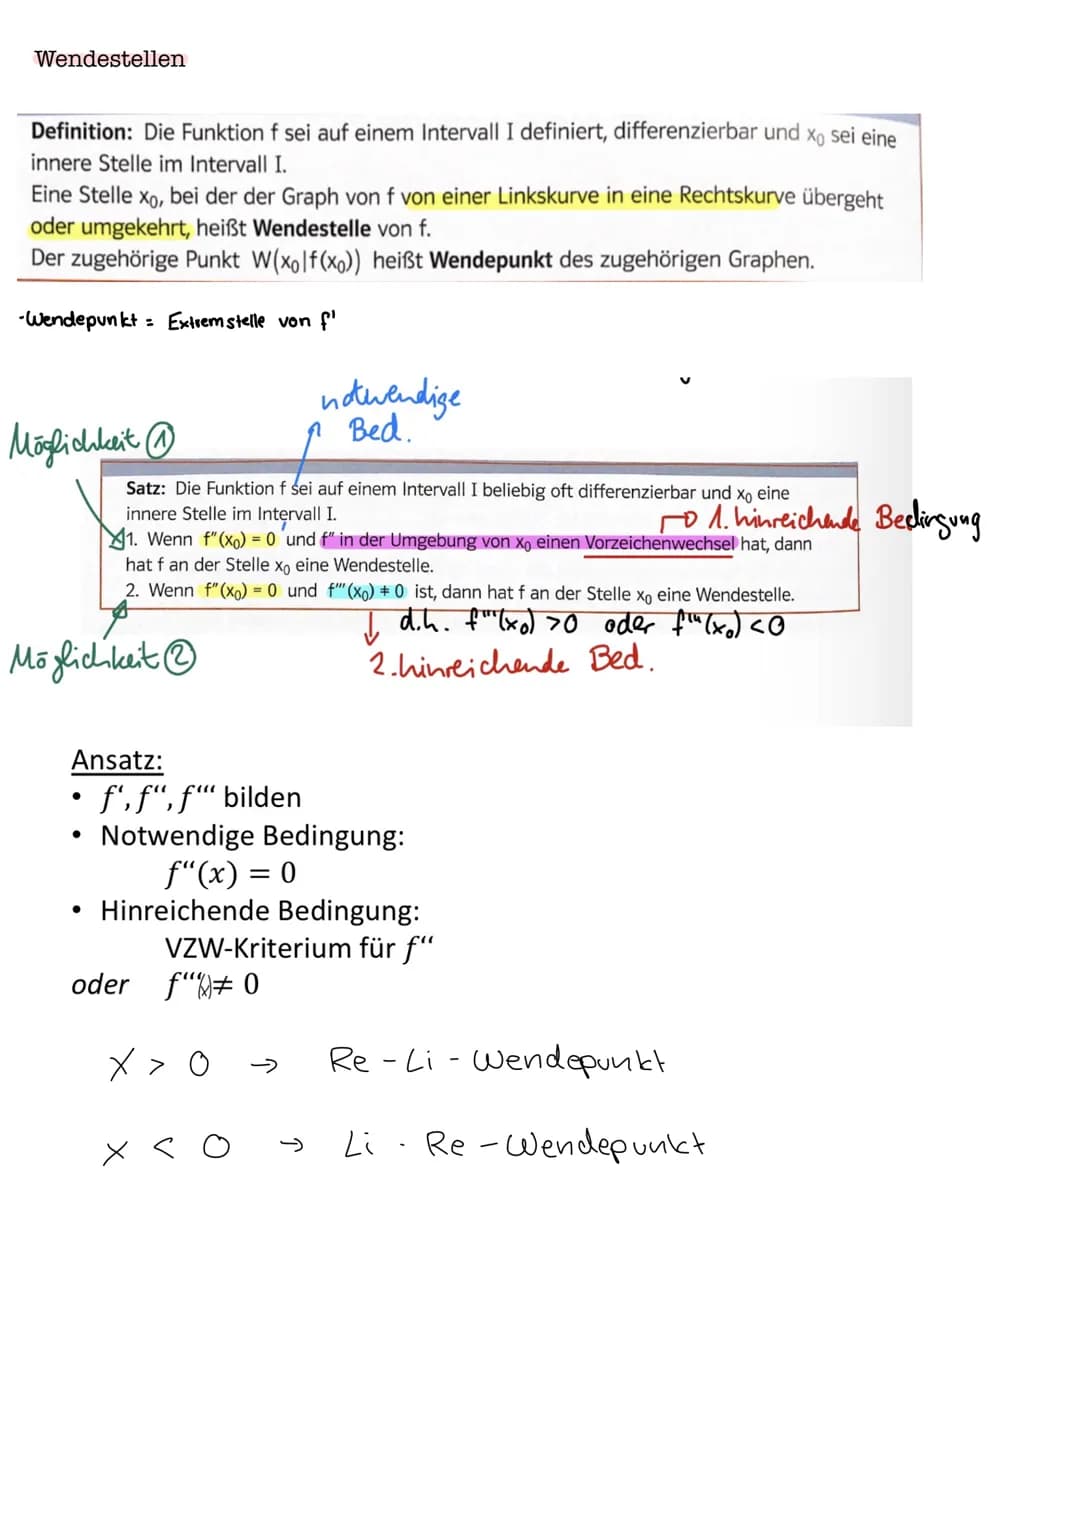 Wendestellen
Definition: Die Funktion f sei auf einem Intervall I definiert, differenzierbar und x₀ sei eine
innere Stelle im Intervall I.
Eine Stelle x₀, bei der der Graph von f von einer Linkskurve in eine Rechtskurve übergeht
oder umgekehrt, heißt Wendestelle von f.
Der zugehörige Punkt W(x₀|f(x₀)) heißt Wendepunkt des zugehörigen Graphen.
-Wendepunkt = Extremstelle von f'
notwendige
Bed.
Möglichkeit ①
Satz: Die Funktion f sei auf einem Intervall I beliebig oft differenzierbar und x₀ eine
innere Stelle im Intervall I.
→ 1. hinreichende Bedingung
1. Wenn f"(x₀) = 0 und f" in der Umgebung von x₀ einen Vorzeichenwechsel hat, dann
hat f an der Stelle x₀ eine Wendestelle.
2. Wenn f"(x₀) = 0 und f'''(x₀) ≠ 0 ist, dann hat f an der Stelle x₀ eine Wendestelle.
d.h. f'''(x₀) >0 oder f'''(x₀) <0
Möglichkeit ②
2. hinreichende Bed.
Ansatz:
• f‘, f“, f“‘ bilden
• Notwendige Bedingung:
f“(x) = 0
• Hinreichende Bedingung:
VZW-Kriterium für f“
oder f“‘(x) ≠ 0
x > 0 → Re - Li - Wendepunkt
x < 0 → Li - Re - Wendepunkt